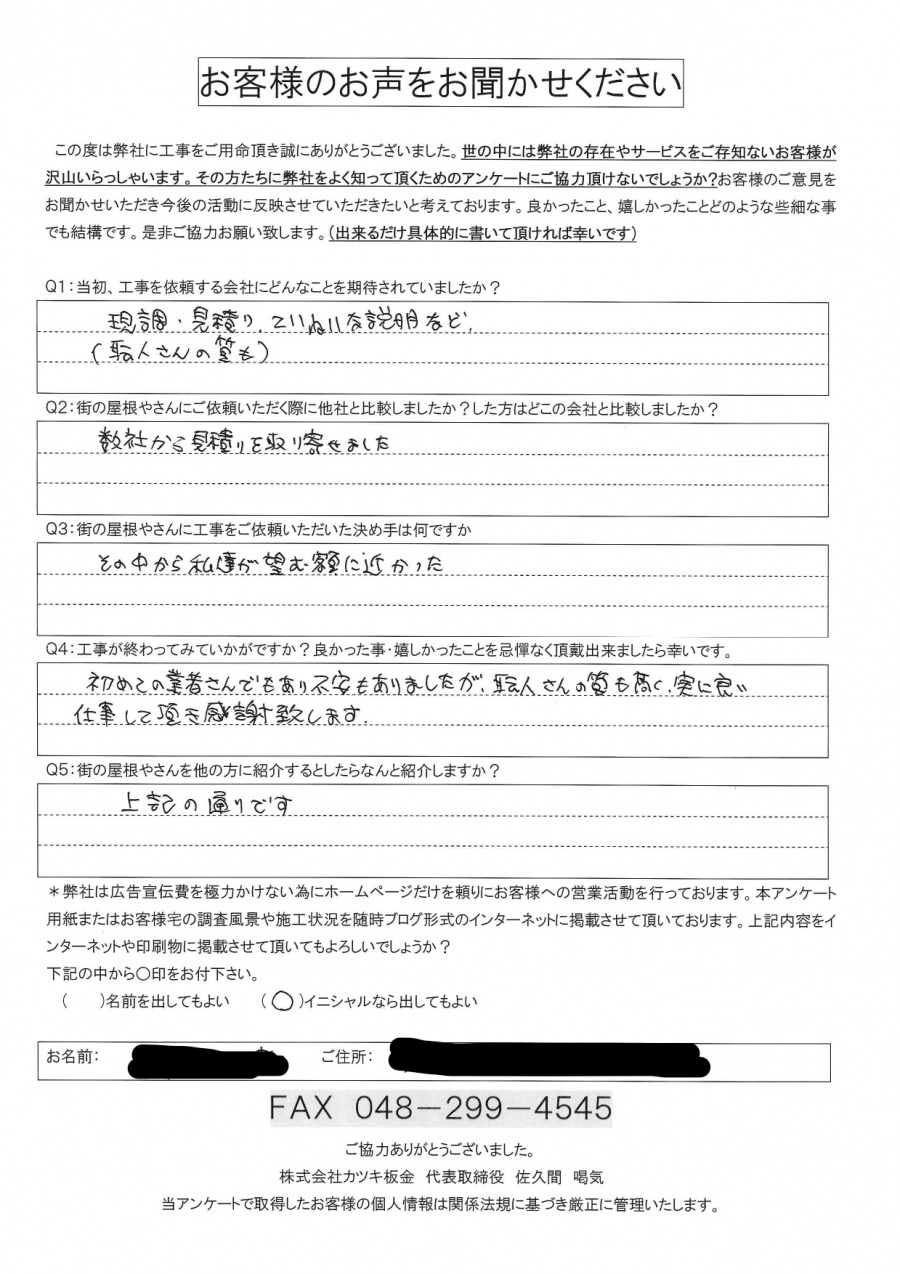 お客様のお声をお聞かせください
この度は弊社に工事をご用命頂き誠にありがとうございました。世の中には弊社の存在やサービスをご存知ないお客様が
沢山いらっしゃいます。その方たちに弊社をよく知って頂くためのアンケートにご協力頂けないでしょうか?お客様のご意見を
お聞かせいただき今後の活動に反映させていただきたいと考えております。良かったこと、嬉しかったことどのような些細な事
でも結構です。是非ご協力お願い致します。(出来るだけ具体的に書いて頂ければ幸いです)
Q1:当初、工事を依頼する会社にどんなことを期待されていましたか?
現調・見積り、ていねいな説明など、
(職人さんの質も)
Q2:街の屋根やさんにご依頼いただく際に他社と比較しましたか?した方はどこの会社と比較しましたか?
数社から見積りを取り寄せました
Q3:街の屋根やさんに工事をご依頼いただいた決め手は何ですか
その中から私達が望む額に近かった
Q4:工事が終わってみていかがですか?良かった事・嬉しかったことを忌憚なく頂戴出来ましたら幸いです。
初めての業者さんでもあり不安もありましたが、職人さんの質も高く、実に良い
仕事して頂き感謝致します。
Q5:街の屋根やさんを他の方に紹介するとしたらなんと紹介しますか?
上記の通りです
*弊社は広告宣伝費を極力かけない為にホームページだけを頼りにお客様への営業活動を行っております。本アンケート
用紙またはお客様宅の調査風景や施工状況を随時ブログ形式のインターネットに掲載させて頂いております。上記内容をイ
ンターネットや印刷物に掲載させて頂いてもよろしいでしょうか?
下記の中から〇印をお付下さい。
( )名前を出してもよい (〇)イニシャルなら出してもよい
お名前: ご住所:
FAX 048-299-4545
ご協力ありがとうございました。
株式会社カツキ板金 代表取締役 佐久間 喝気
当アンケートで取得したお客様の個人情報は関係法規に基づき厳正に管理いたします。